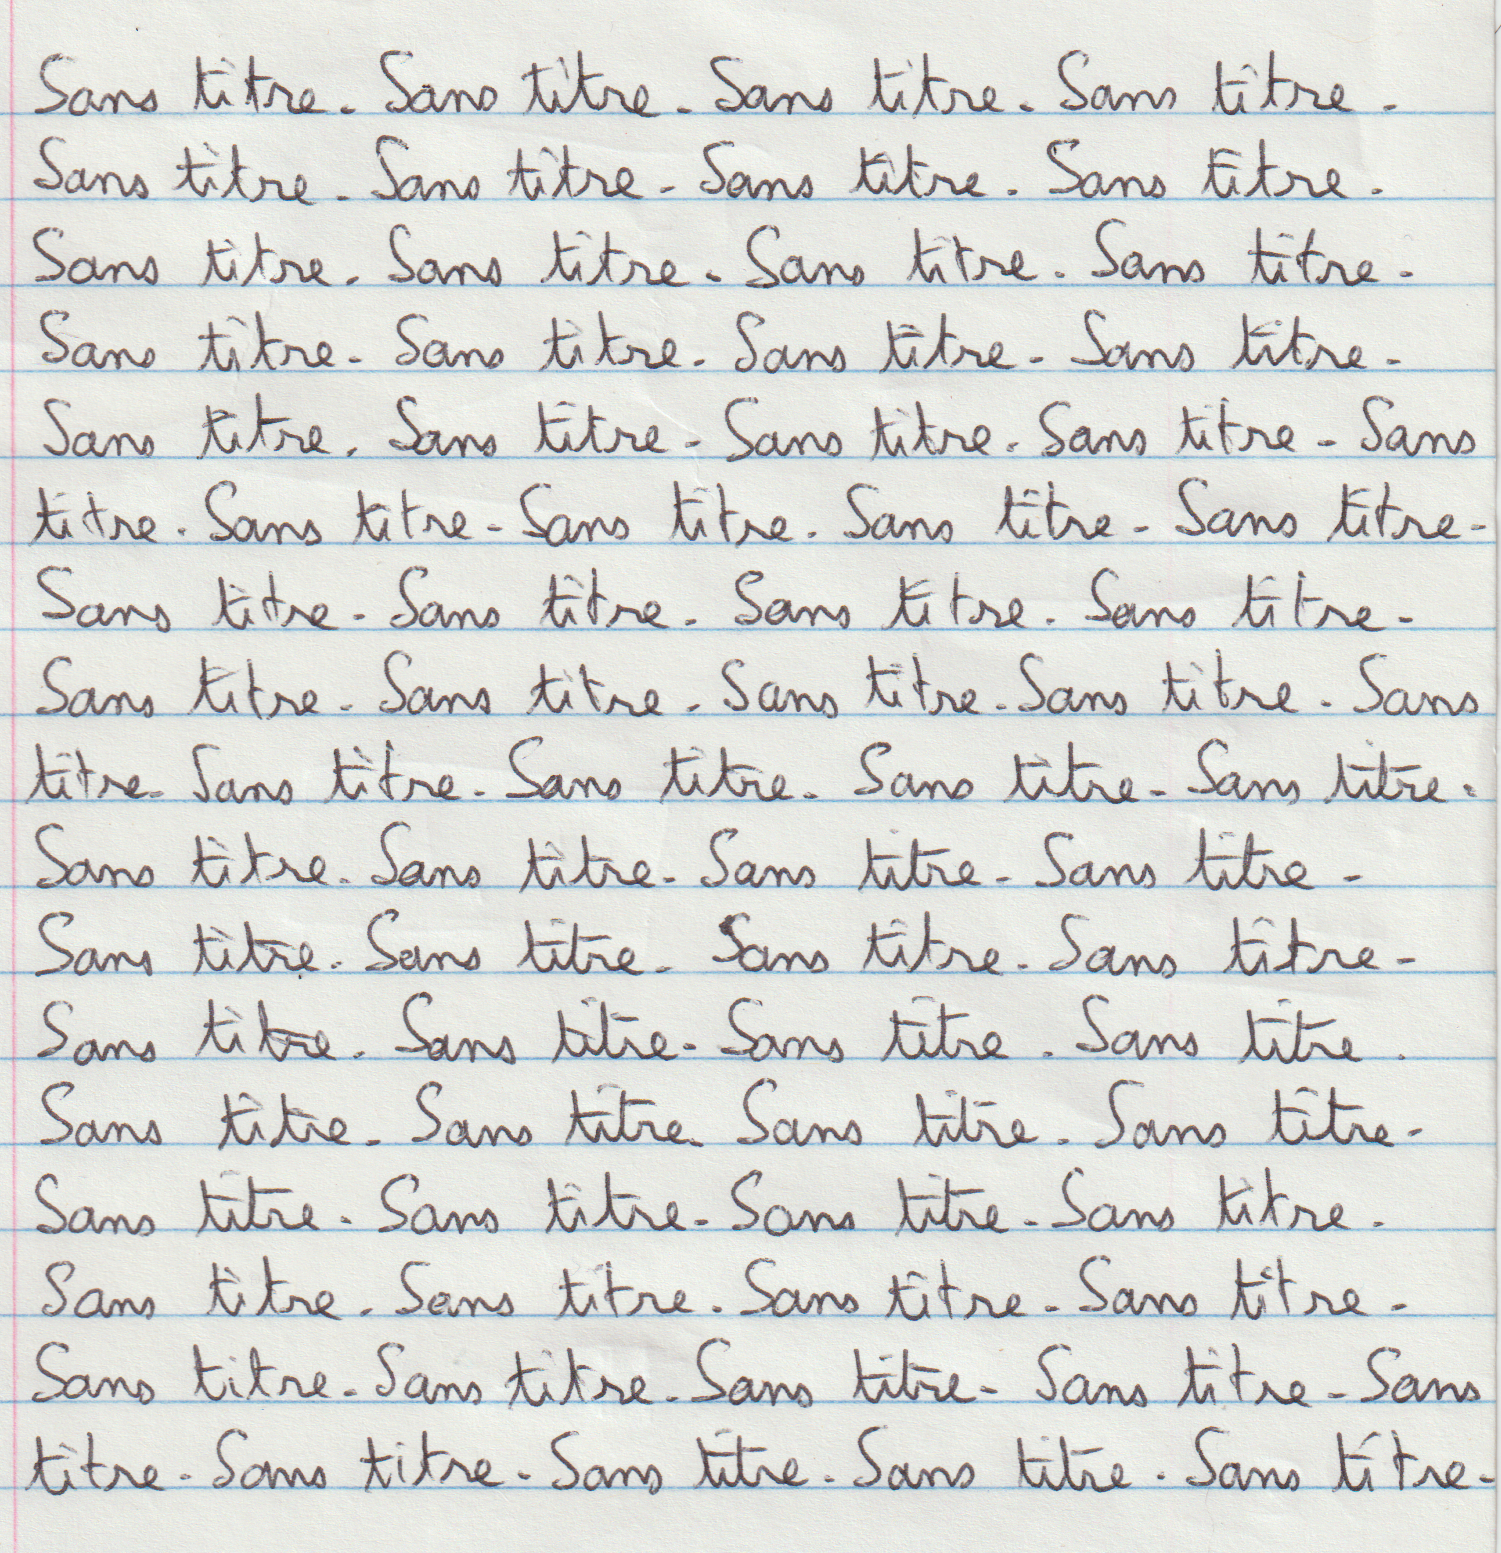 Sans titre. Sans titre. Sans titre. Sans titre.
Sans titre. Sans titre. Sans titre. Sans titre.
Sans titre. Sans titre. Sans titre. Sans titre.
Sans titre. Sans titre. Sans titre. Sans titre.
Sans titre. Sans titre. Sans titre. Sans titre. Sans
titre. Sans titre. Sans titre. Sans titre. Sans titre.
Sans titre. Sans titre. Sans titre. Sans titre.
Sans titre. Sans titre. Sans titre. Sans titre. Sans
titre. Sans titre. Sans titre. Sans titre. Sans titre.
Sans titre. Sans titre. Sans titre. Sans titre.
Sans titre. Sans titre. Sans titre. Sans titre.
Sans titre. Sans titre. Sans titre. Sans titre.
Sans titre. Sans titre. Sans titre. Sans titre.
Sans titre. Sans titre. Sans titre. Sans titre.
Sans titre. Sans titre. Sans titre. Sans titre.
Sans titre. Sans titre. Sans titre. Sans titre. Sans
titre. Sans titre. Sans titre. Sans titre. Sans titre.